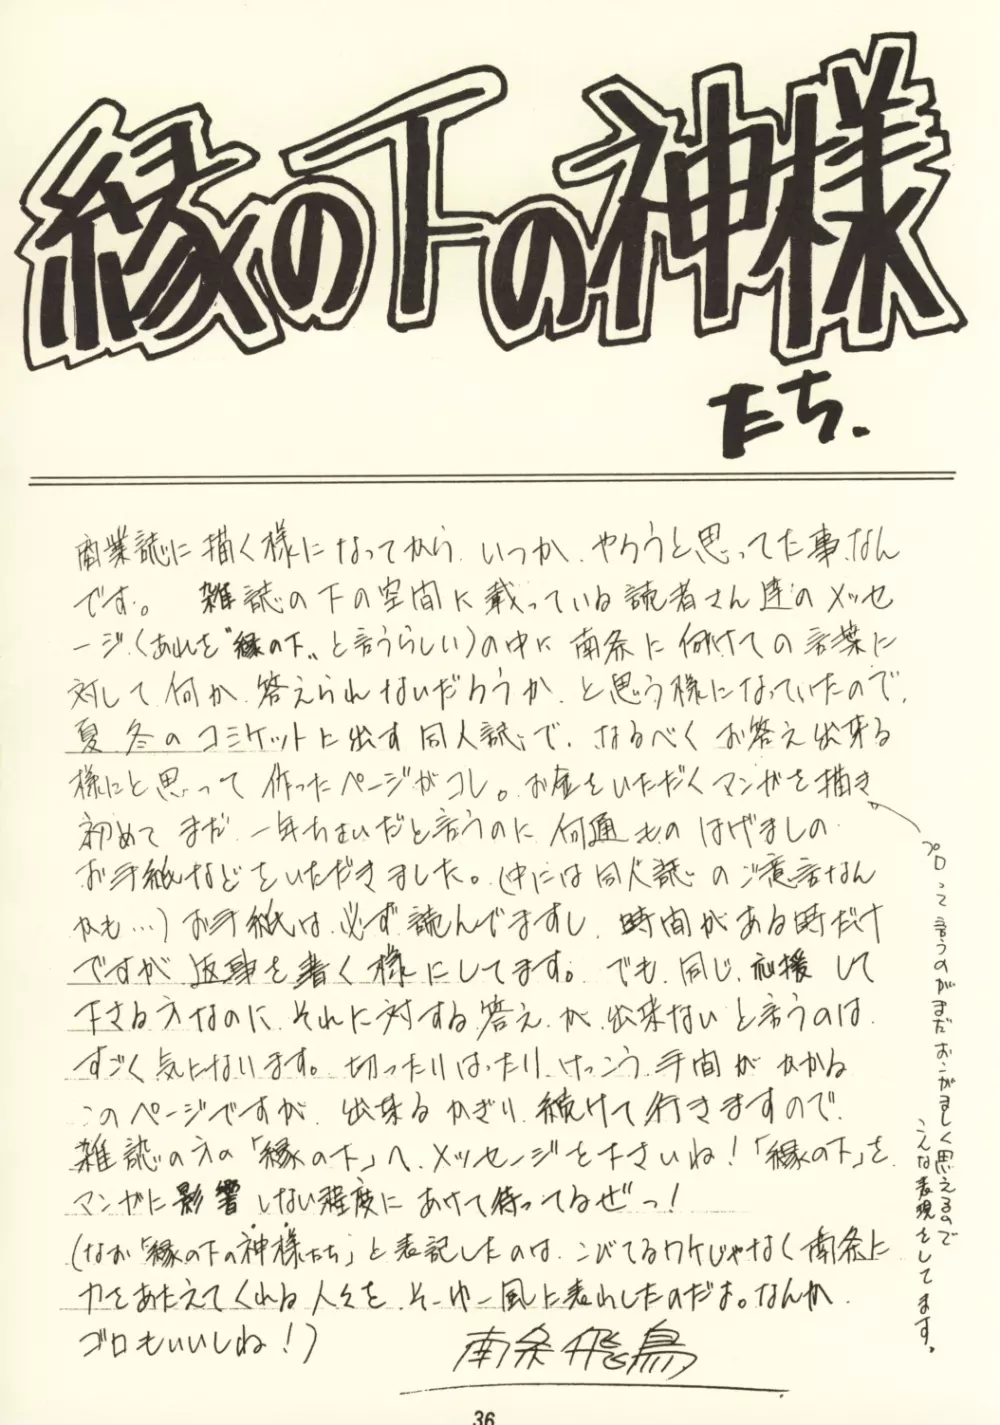 縁の下の神様
たち.
商業誌に描く様になってから、いつか、やろうと思ってた事なん
です。 雑誌の下の空間に載っている読者さん達のメッセ
ージ(あれを〝縁の下〟と言うらしい)の中に南条に向けての言葉に
対して何か答えられないだろうか、と思う様になっていたので、
夏冬のコミケットに出す同人誌で、なるべくお答え出来る
様にと思って作ったページがコレ。お金をいただくマンガを描き
初めてまだ一年ちょいだと言うのに何通ものはげましの
お手紙などをいただきました。(中には同人誌のご意話なん
かも…)お手紙は必ず読んでますし、時間がある時だけ
ですが返事を書く様にしてます。でも同じ、応援して
下さる方なのに、それに対する答えが出来ないと言うのは
すごく気になります。切ったりはったりけっこう手間がかかる
このページですが、出来るかぎり続けて行きますので
雑誌の方の「縁の下」へ、メッセージを下さいね!「縁の下」を
マンガに影響しない程度にあけて待ってるぜっ!
(なお「縁の下の神様たち」と表記したのは、こびてるワケじゃなく南条に
力をあたえてくれる人々を、そーゆー風に表わしたのだよ。なんか
ゴロもいいしね!)
南条飛鳥
プロって言うのがまだおこがましく思えるので
こんな表現をしてます。
36